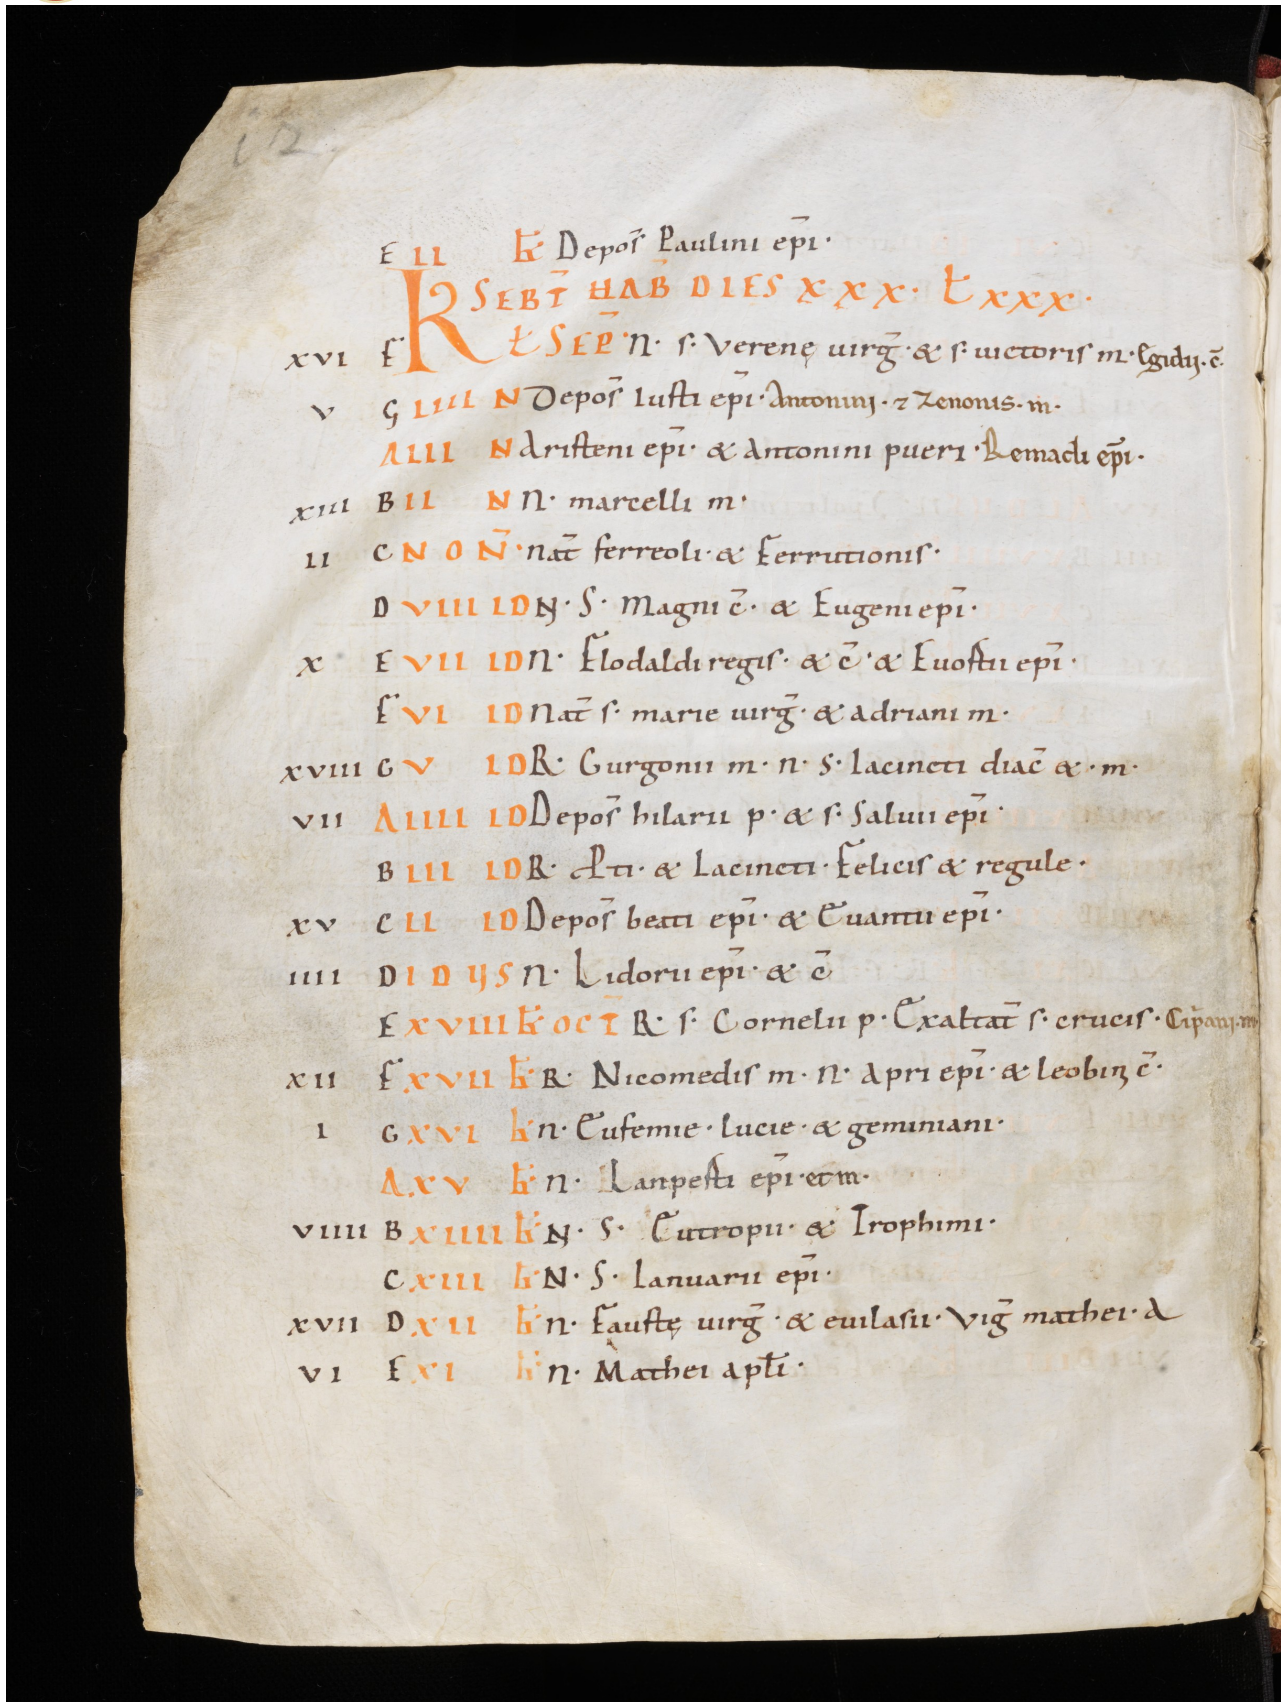 12
E II kł Depos̄ Paulini ep̄i·
SEBT̄ HAB̄ DIES XXX· Ł XXX·
XVI F K Ł SEP̄· N· s· Verenę uirḡ· & s· uictoris m· Egidij· c̄·
V G IIII N Depos̄ Iusti ep̄i· Antonini· ⁊ Zenonis· m·
A III N Aristeni ep̄i· & Antonini pueri· Remacli ep̄i·
XIII B II N N· marcelli m·
II C NON̄· nat̄ ferreoli· & Ferrutionis·
D VIII ID N· S· Magni c̄· & Eugeni ep̄i·
X E VII ID N· Flodaldi regis· & c̄· & Euostii ep̄i·
F VI ID Nat̄ s· marie uirḡ· & adriani m·
XVIII G V ID R· Gurgonii m· n· s· Iacincti diac̄ &· m·
VII A IIII ID Depos̄ hilarii p· & s· Saluii ep̄i·
B III ID R· Pti· & Iacincti· Felicis & regule·
XV C II ID Depos̄ beati ep̄i· & Euantii ep̄i·
IIII D IDIJS N· Lidorii ep̄i· & c̄
E XVIII kł OCT̄ R· s· Cornelii p· Exaltat̄ s· crucis· Cip̄ani· m
XII F XVII kł R· Nicomedis m· N· Apri ep̄i· & leobini c̄·
I G XVI kł n· Eufemie· lucie· & geminiani·
A XV kł n· Lanpesti ep̄i· et m·
VIIII B XIIII kł N· S· Eutropii· & Trophimi·
C XIII kł N· S· Ianuarii ep̄i·
XVII D XII kł n· Faustę uirḡ· & euilasii· Viḡ mathei· A
VI E XI kł n· Mathei apłi·